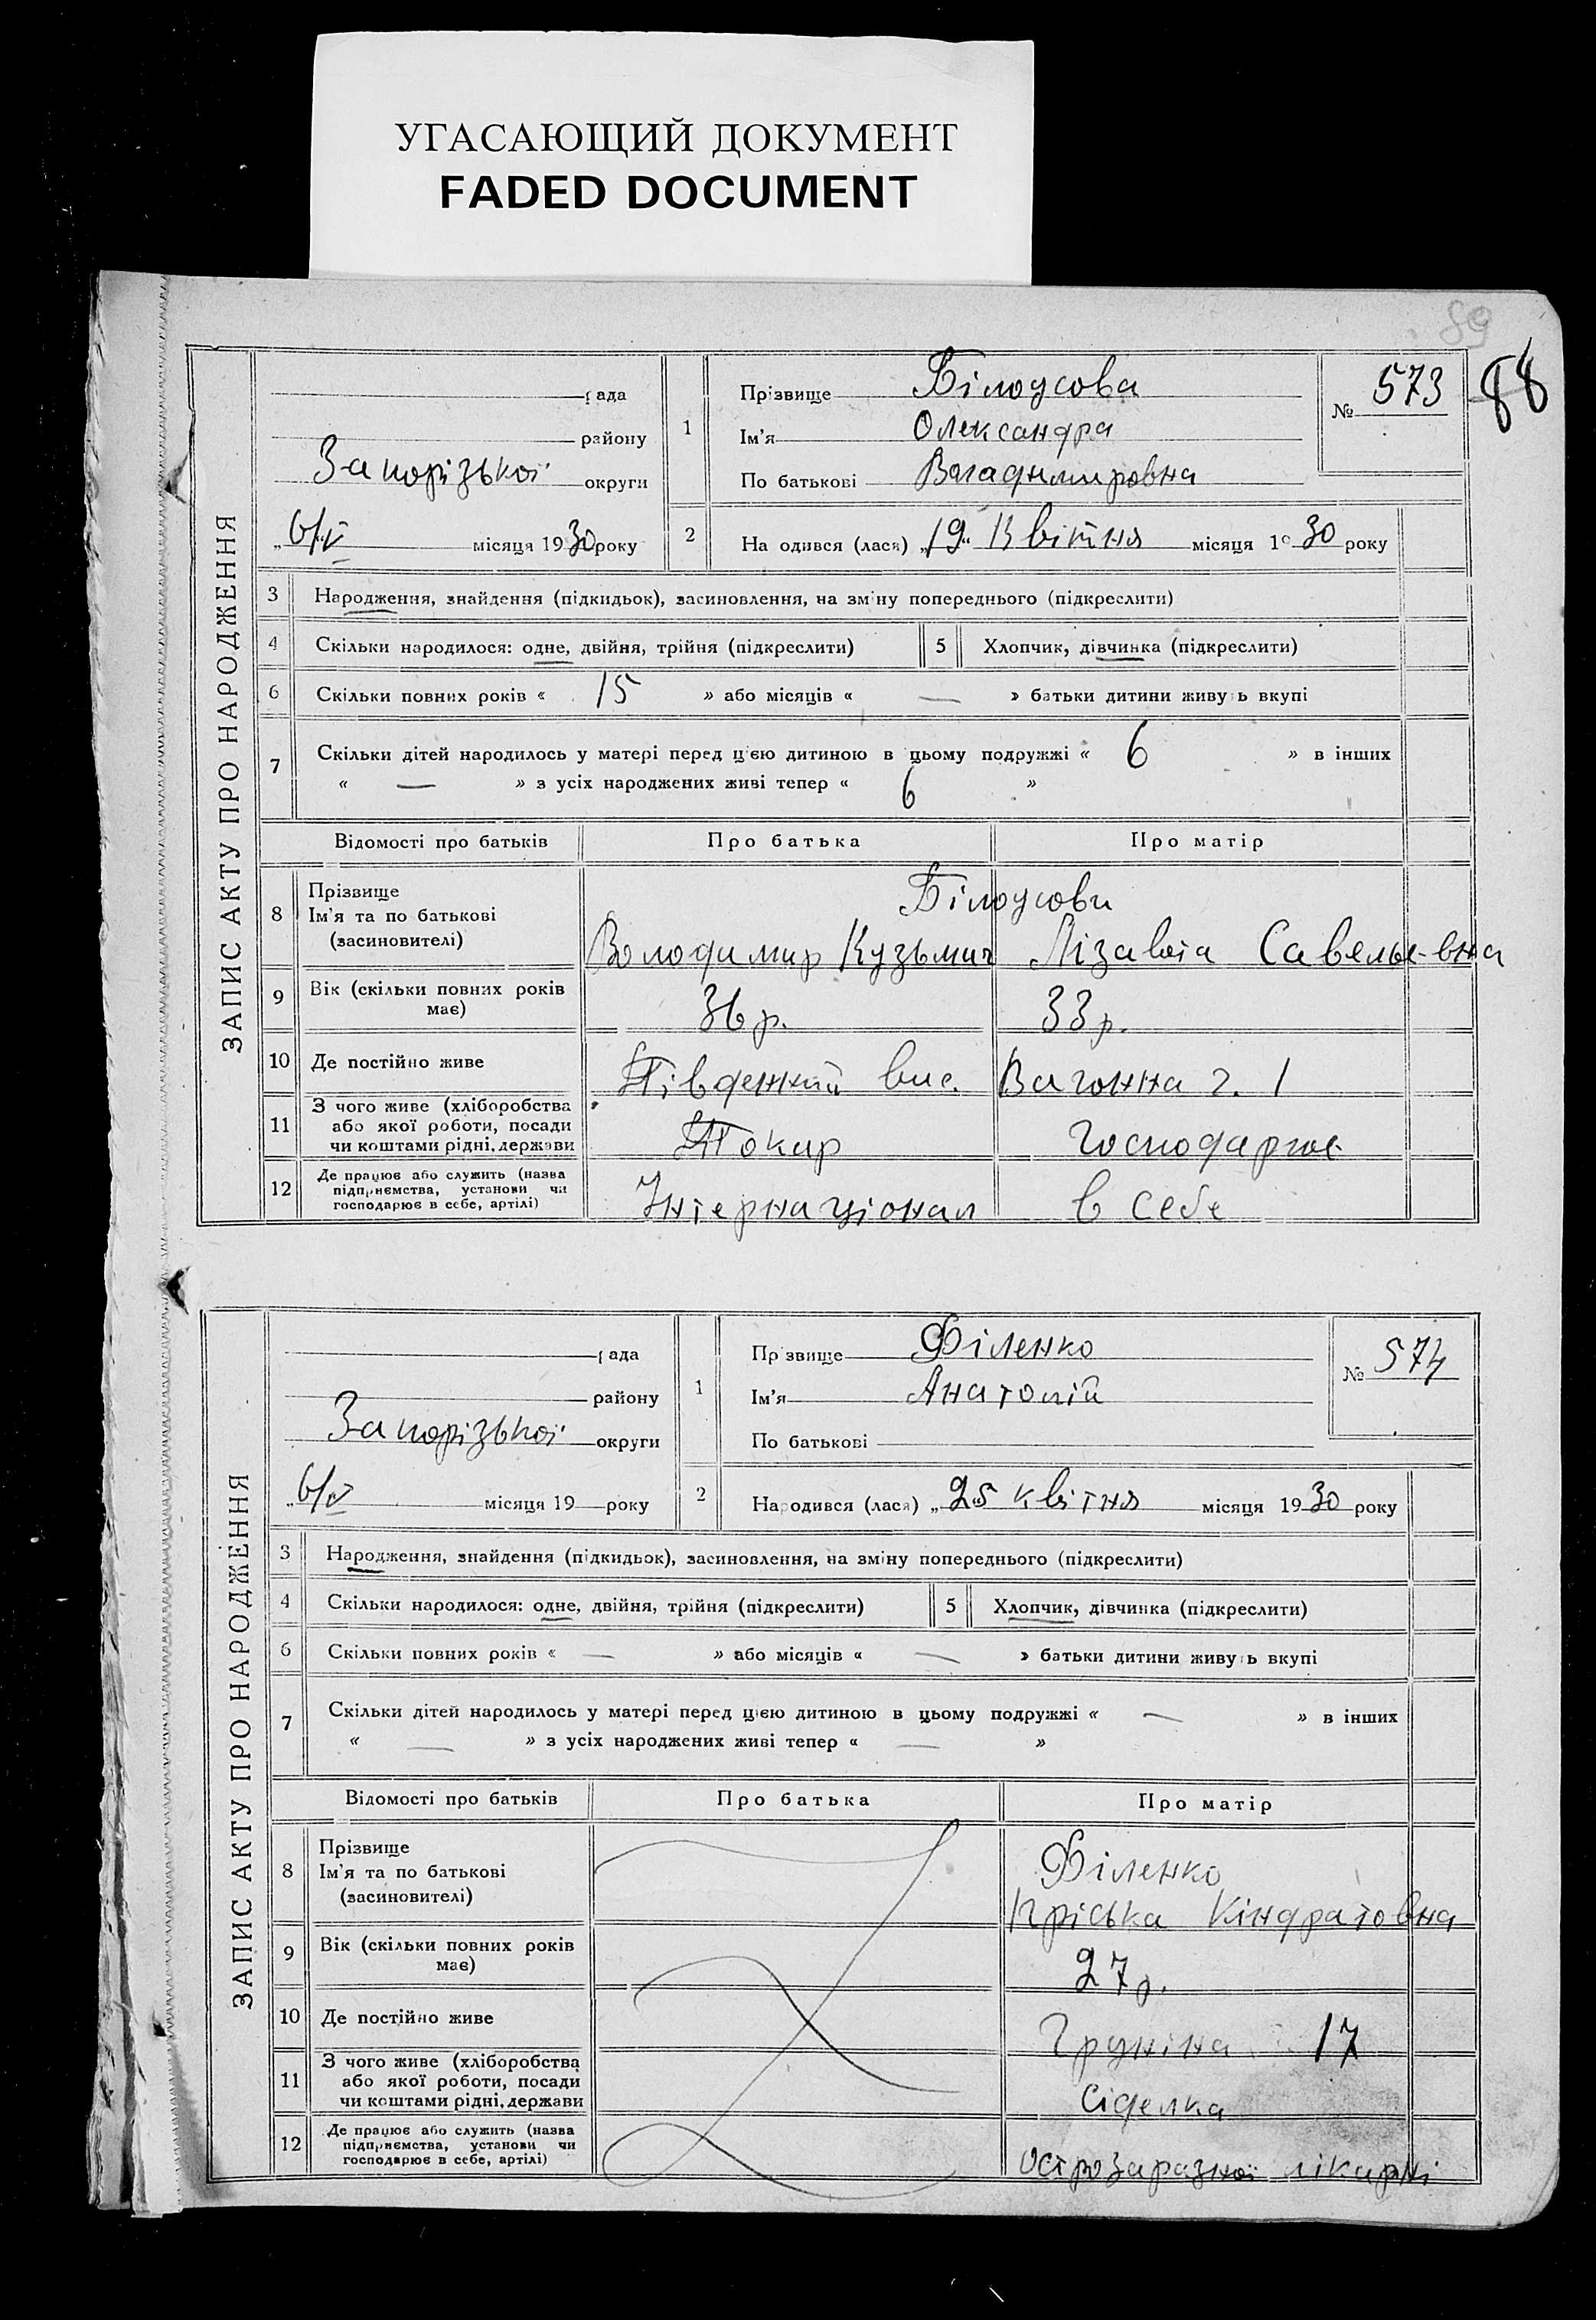 УГАСАЮЩИЙ ДОКУМЕНТ
FADED DOCUMENT
89
88
ЗАПИС АКТУ ПРО НАРОДЖЕННЯ
рада
району
Запорізької округи
„6/V місяця 1930 року
1
Прізвище Білоусова
Ім'я Олександра
По батькові Владимировна
№ 573
2
На одився (лася) „19" Квітня місяця 19 30 року
3 Народження, знайдення (підкидьок), засиновлення, на зміну попереднього (підкреслити)
4 Скільки народилося: одне, двійня, трійня (підкреслити) 5 Хлопчик, дівчинка (підкреслити)
6 Скільки повних років « 15 » або місяців « — » батьки дитини живуть вкупі
7 Скільки дітей народилось у матері перед цією дитиною в цьому подружжі « 6 » в інших
« — » з усіх народжених живі тепер « 6 »
Відомості про батьків Про батька Про матір
8 Прізвище
Ім'я та по батькові
(засиновителі)
Білоусови
Володимир Кузьмич Лізавета Савельевна
9 Вік (скільки повних років має) 36 р. 33 р.
10 Де постійно живе Південний вис. Вагонна 2. 1
11 З чого живе (хліборобства
або якої роботи, посади
чи коштами рідні, держави
Токар господарює
12 Де працює або служить (назва
підприємства, установи чи
господарює в себе, артілі)
Інтернаціонал в себе
ЗАПИС АКТУ ПРО НАРОДЖЕННЯ
рада
району
Запорізької округи
„6/V місяця 19 — року
1
Прізвище Філенко
Ім'я Анатолій
По батькові
№ 574
2
Народився (лася) „25 квітня місяця 1930 року
3 Народження, знайдення (підкидьок), засиновлення, на зміну попереднього (підкреслити)
4 Скільки народилося: одне, двійня, трійня (підкреслити) 5 Хлопчик, дівчинка (підкреслити)
6 Скільки повних років « — » або місяців « — » батьки дитини живуть вкупі
7 Скільки дітей народилось у матері перед цією дитиною в цьому подружжі « — » в інших
« — » з усіх народжених живі тепер « — »
Відомості про батьків Про батька Про матір
8 Прізвище
Ім'я та по батькові
(засиновителі)
Філенко
Пріська Кіндратовна
9 Вік (скільки повних років має) 27 р.
10 Де постійно живе Груніна 17
11 З чого живе (хліборобства
або якої роботи, посади
чи коштами рідні, держави
Сіделка
12 Де працює або служить (назва
підприємства, установи чи
господарює в себе, артілі)
Острозаразної лікарні